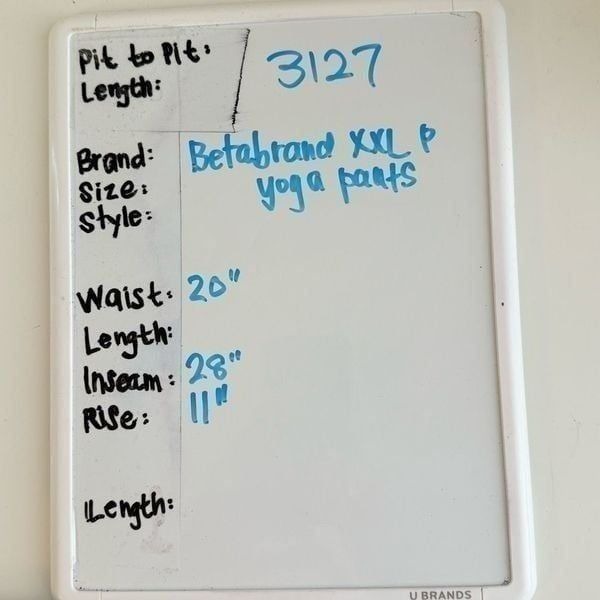 Pit to Pit:
3127
Length:
Brand: Betabrand XXL P
Size: yoga pants
Style:
Waist: 20"
Length:
Inseam: 28"
Rise: 11"
Length:
U BRANDS